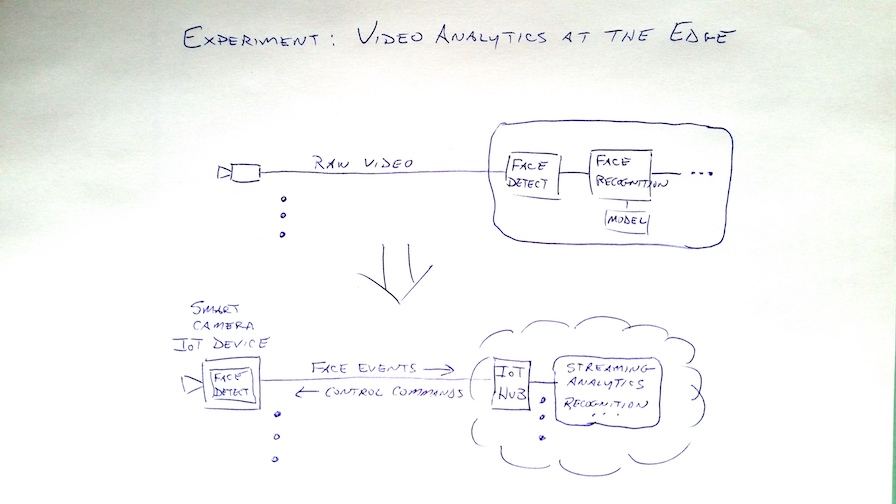 EXPERIMENT: VIDEO ANALYTICS AT THE EDGE
RAW VIDEO
FACE
DETECT
FACE
RECOGNITION
MODEL
SMART
CAMERA
IoT DEVICE
FACE
DETECT
FACE EVENTS
CONTROL COMMANDS
IoT
HUB
STREAMING
ANALYTICS
RECOGNITION
...